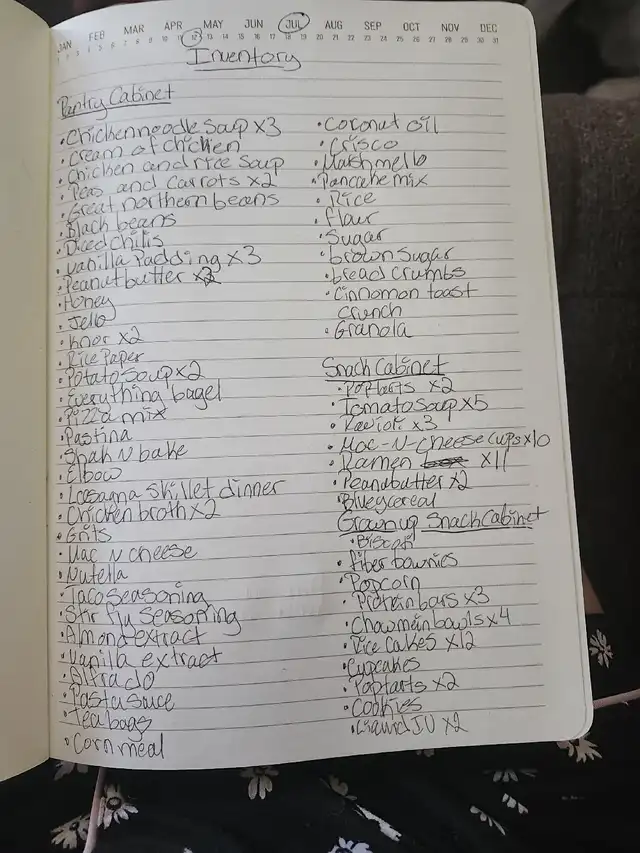 JAN FEB MAR APR MAY JUN JUL AUG SEP OCT NOV DEC
1 2 3 4 5 6 7 8 9 10 11 12 13 14 15 16 17 18 19 20 21 22 23 24 25 26 27 28 29 30 31
Inventory
Pantry Cabinet
• Chicken noodle soup x3
• Cream of chicken
• Chicken and rice soup
• Peas and Carrots x2
• Great northern beans
• Black beans
• Diced chilis
• Vanilla Padding x3
• Peanut butter x3
• Honey
• Jello
• Knor x2
• Rice Paper
• Potato Soup x2
• Everything bagel
• Pizza mix
• Pastina
• Shak N bake
• Elbow
• Lasagna Skillet dinner
• Chicken broth x2
• Grits
• Mac N cheese
• Nutella
• Taco Seasoning
• Stir fry Seasoning
• Almond extract
• Vanilla extract
• Alfrado
• Pasta sauce
• Tea bags
• Corn meal
• Coconut oil
• Crisco
• Marshmello
• Pancake mix
• Rice
• flour
• Sugar
• brown Sugar
• bread crumbs
• Cinnomon toast
crunch
• Granola
Snack Cabinet
• Poptarts x2
• Tomato Soup x5
• Ravioli x3
• Mac-N-Cheese cups x10
• Ramen x11
• Peanubutter x2
• Bluey cereal
Grown up Snack Cabinet
• Biscoff
• fiber bownies
• Popcorn
• Protein bars x3
• Chowmein bowls x4
• Rice Cakes x12
• Cupcakes
• Poptarts x2
• Cookies
• Liquid IV x2